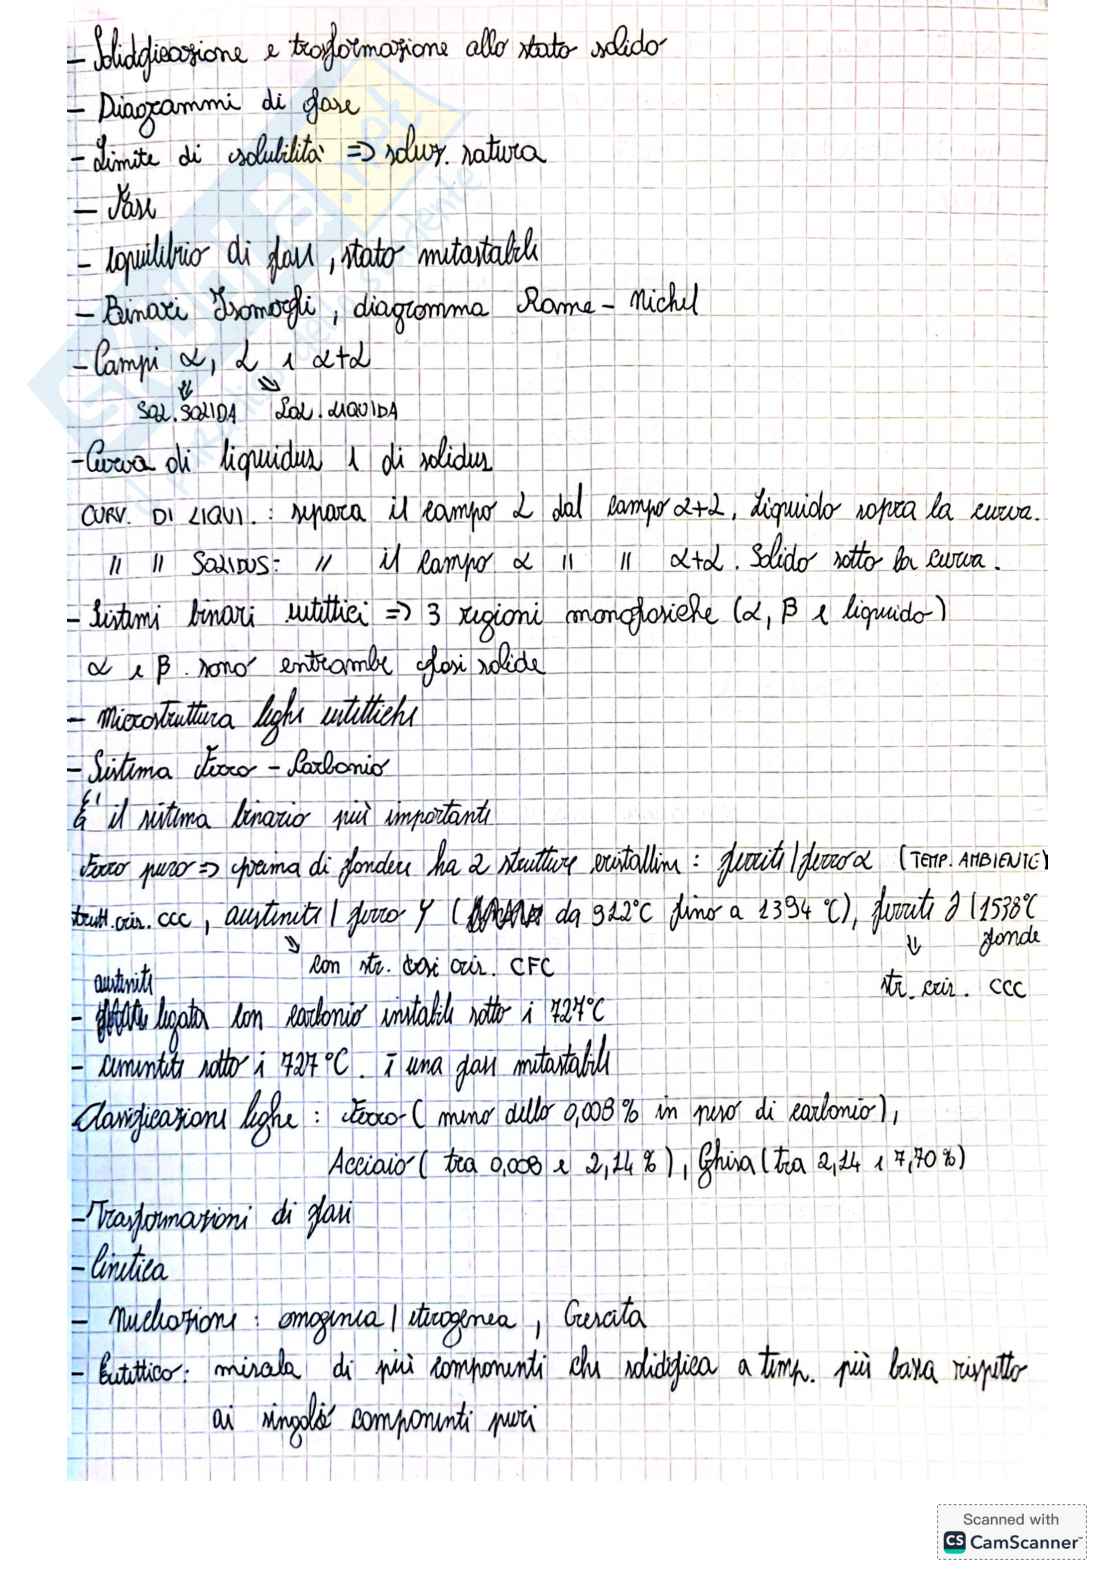 - Solidificazione e trasformazione allo stato solido
- Diagrammi di fase
- Limite di solubilità => soluz. satura
- Fase
- equilibrio di fasi, stato metastabile
- Binari Isomorfi, diagramma Rame - Nichel
- Campi α, L e α+L
SOL. SOLIDA SOL. LIQUIDA
- Curva di liquidus e di solidus
CURV. DI LIQUI. : separa il campo L dal campo α+L. Liquido sopra la curva.
" " SOLIDUS: " il campo α " " α+L. Solido sotto la curva.
- Sistemi binari eutettici => 3 regioni monofasiche (α, β e liquido)
α e β sono entrambe fasi solide
- Microstruttura leghe eutettiche
- Sistema Ferro - Carbonio
E' il sistema binario più importante
Ferro puro => prima di fondere ha 2 strutture cristalline : ferrite / ferro α (TEMP. AMBIENTE)
strutt. cris. CCC, austenite / ferro γ ( da 912°C fino a 1394 °C), ferrite δ (1538°C
fonde
con str. cris. CFC
str. cris. CCC
austenite
- legata con carbonio instabile sotto i 727°C
- cementite sotto i 727°C. è una fase metastabile
Classificazione leghe : Ferro (meno dello 0,008% in peso di carbonio),
Acciaio (tra 0,008 e 2,14 %), Ghisa (tra 2,14 e 7,70 %)
- Trasformazioni di fasi
- Cinetica
- Nucleazione : omogenea / eterogenea, Crescita
- Eutettico: miscela di più componenti che solidifica a temp. più bassa rispetto
ai singoli componenti puri
Scanned with
CS CamScanner